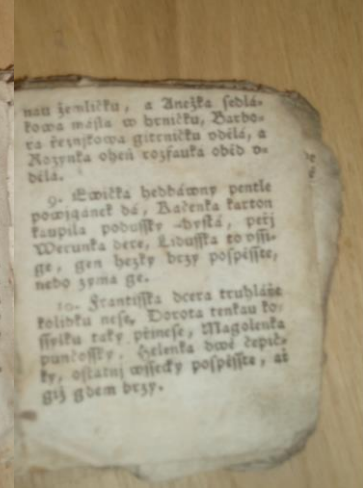 nau žemličku, a Anežka sedlá-
kowa másla w hrničku, Barbo-
ra řeznjkowa gitrničku vdělá, a
Rozynka oheň rozfauká oběd v-
dělá.
9. Ewička hedbáwný pentle
powigánek dá, Kačenka karton
kaupila podussky chystá, peřj
Werunka dere, Lidusska to ussi-
ge, gen hezky brzy pospěsste,
nebo zyma ge.
10. Frantisska dcera truhláře
kolibku nese, Dorota tenkau ko-
ssylku taky přinese, Magolenka
punčossky, Helenka dwě čepič-
ky, ostatnj wssecky pospěsste, ať
giž gdem brzy.